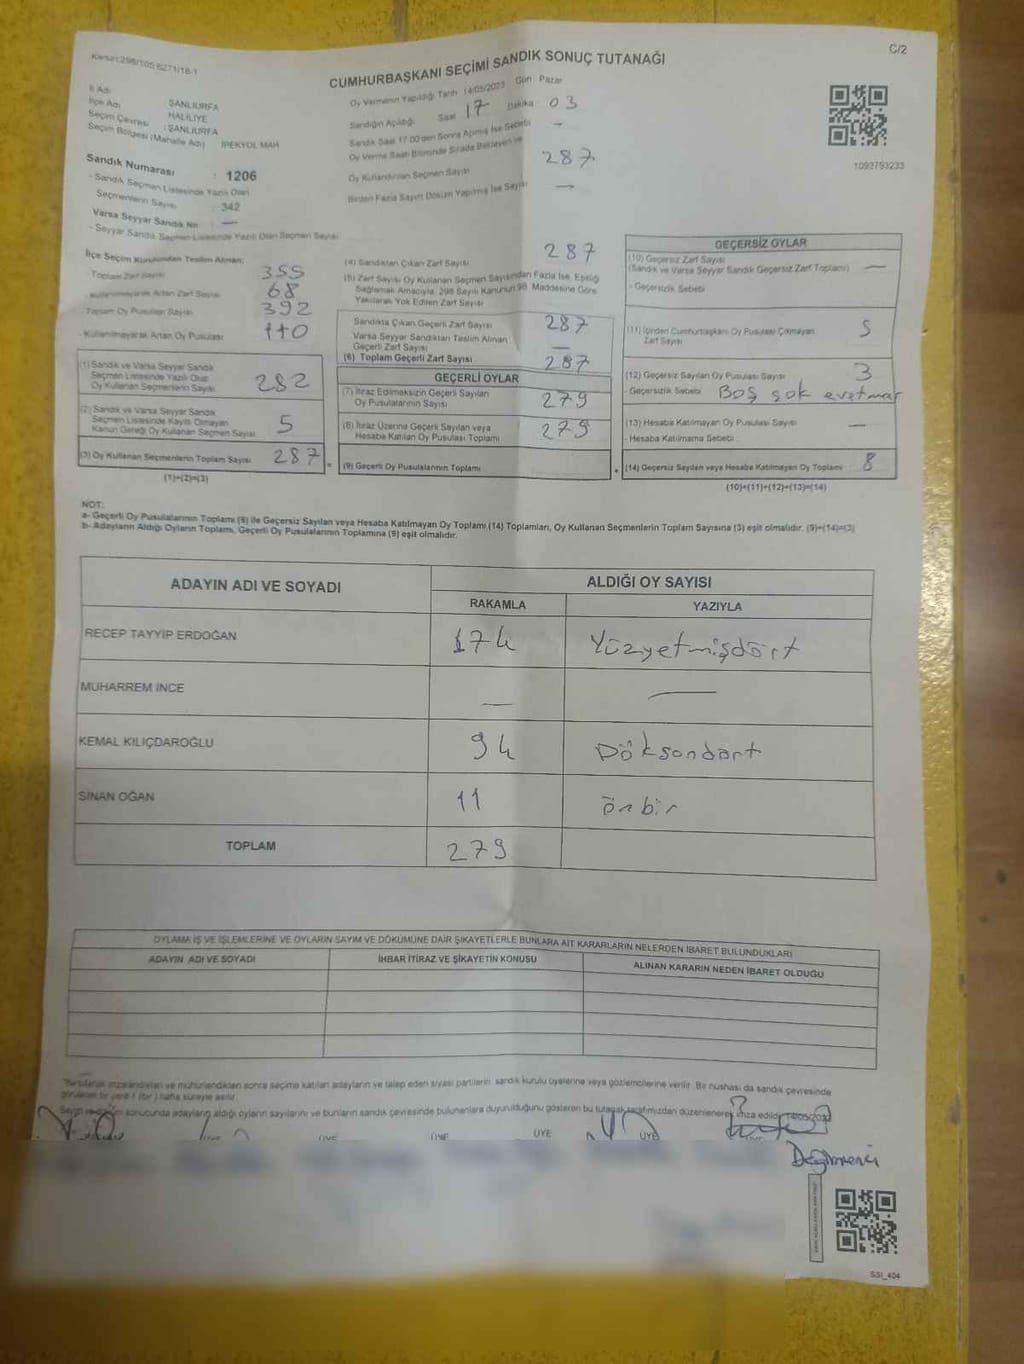 Kanun:298/105 6271/18-1
C/2
CUMHURBAŞKANI SEÇİMİ SANDIK SONUÇ TUTANAĞI
İl Adı ŞANLIURFA
İlçe Adı HALİLİYE
Seçim Çevresi : ŞANLIURFA
Seçim Bölgesi (Mahalle Adı) İPEKYOL MAH
Sandık Numarası : 1206
- Sandık Seçmen Listesinde Yazılı Olan
Seçmenlerin Sayısı : 342
Varsa Seyyar Sandık No : —
- Seyyar Sandık Seçmen Listesinde Yazılı Olan Seçmen Sayısı
Oy Vermenin Yapıldığı Tarih 14/05/2023 Gün Pazar
Sandığın Açıldığı Saat 17 Dakika 03
Sandık Saat 17.00'den Sonra Açılmış İse Sebebi —
Oy Verme Saati Bitiminde Sırada Bekleyen ve
Oy Kullandırılan Seçmen Sayısı 287
Birden Fazla Sayım Döküm Yapılmış İse Sayısı —
1093793233
İlçe Seçim Kurulundan Teslim Alınan;
Toplam Zarf Sayısı 355
Kullanılmayarak Artan Zarf Sayısı 68
Toplam Oy Pusulası Sayısı 392
Kullanılmayarak Artan Oy Pusulası 110
(1) Sandık ve Varsa Seyyar Sandık
Seçmen Listesinde Yazılı Olup
Oy Kullanan Seçmenlerin Sayısı 282
(2) Sandık ve Varsa Seyyar Sandık
Seçmen Listesinde Kayıtlı Olmayan
Kanun Gereği Oy Kullanan Seçmen Sayısı 5
(3) Oy Kullanan Seçmenlerin Toplam Sayısı 287
(1)+(2)=(3)
(4) Sandıktan Çıkan Zarf Sayısı 287
(5) Zarf Sayısı Oy Kullanan Seçmen Sayısından Fazla İse, Eşitliği
Sağlamak Amacıyla, 298 Sayılı Kanunun 98. Maddesine Göre
Yakılarak Yok Edilen Zarf Sayısı
Sandıkta Çıkan Geçerli Zarf Sayısı 287
Varsa Seyyar Sandıktan Teslim Alınan
Geçerli Zarf Sayısı —
(6) Toplam Geçerli Zarf Sayısı 287
GEÇERLİ OYLAR
(7) İtiraz Edilmeksizin Geçerli Sayılan
Oy Pusulalarının Sayısı 279
(8) İtiraz Üzerine Geçerli Sayılan veya
Hesaba Katılan Oy Pusulası Toplamı 279
(9) Geçerli Oy Pusulalarının Toplamı
GEÇERSİZ OYLAR
(10) Geçersiz Zarf Sayısı
(Sandık ve Varsa Seyyar Sandık Geçersiz Zarf Toplamı) —
- Geçersizlik Sebebi
(11) İçinden Cumhurbaşkanı Oy Pusulası Çıkmayan
Zarf Sayısı 5
(12) Geçersiz Sayılan Oy Pusulası Sayısı 3
- Geçersizlik Sebebi : Boş
(13) Hesaba Katılmayan Oy Pusulası Sayısı —
- Hesaba Katılmama Sebebi :
(14) Geçersiz Sayılan veya Hesaba Katılmayan Oy Toplamı 8
(10)+(11)+(12)+(13)=(14)
NOT:
a- Geçerli Oy Pusulalarının Toplamı (9) ile Geçersiz Sayılan veya Hesaba Katılmayan Oy Toplamı (14) Toplamları, Oy Kullanan Seçmenlerin Toplam Sayısına (3) eşit olmalıdır. (9)+(14)=(3)
b- Adayların Aldığı Oyların Toplamı, Geçerli Oy Pusulalarının Toplamına (9) eşit olmalıdır.
ADAYIN ADI VE SOYADI
ALDIĞI OY SAYISI
RAKAMLA YAZIYLA
RECEP TAYYİP ERDOĞAN 174 Yüzyetmişdört
MUHARREM İNCE — —
KEMAL KILIÇDAROĞLU 94 Döksandört
SİNAN OĞAN 11 önbir
TOPLAM 279
OYLAMA İŞ VE İŞLEMLERİNE VE OYLARIN SAYIM VE DÖKÜMÜNE DAİR ŞİKAYETLERLE BUNLARA AİT KARARLARIN NELERDEN İBARET BULUNDUKLARI
ADAYIN ADI VE SOYADI İHBAR İTİRAZ VE ŞİKAYETİN KONUSU ALINAN KARARIN NEDEN İBARET OLDUĞU
imzalandıktan ve mühürlendikten sonra seçime katılan adayların ve talep eden siyasi partilerin sandık kurulu üyelerine veya gözlemcilerine verilir. Bir nüshası da sandık çevresinde
görülebilen bir yere 1 (bir) hafta süreyle asılır.
Seçim sonucunda adayların aldığı oyların sayılarını ve bunların sandık çevresinde bulunanlara duyurulduğunu gösteren bu tutanak tarafımızdan düzenlenerek imza edildi.
ÜYE ÜYE ÜYE ÜYE
Değirmenci
SSI_404